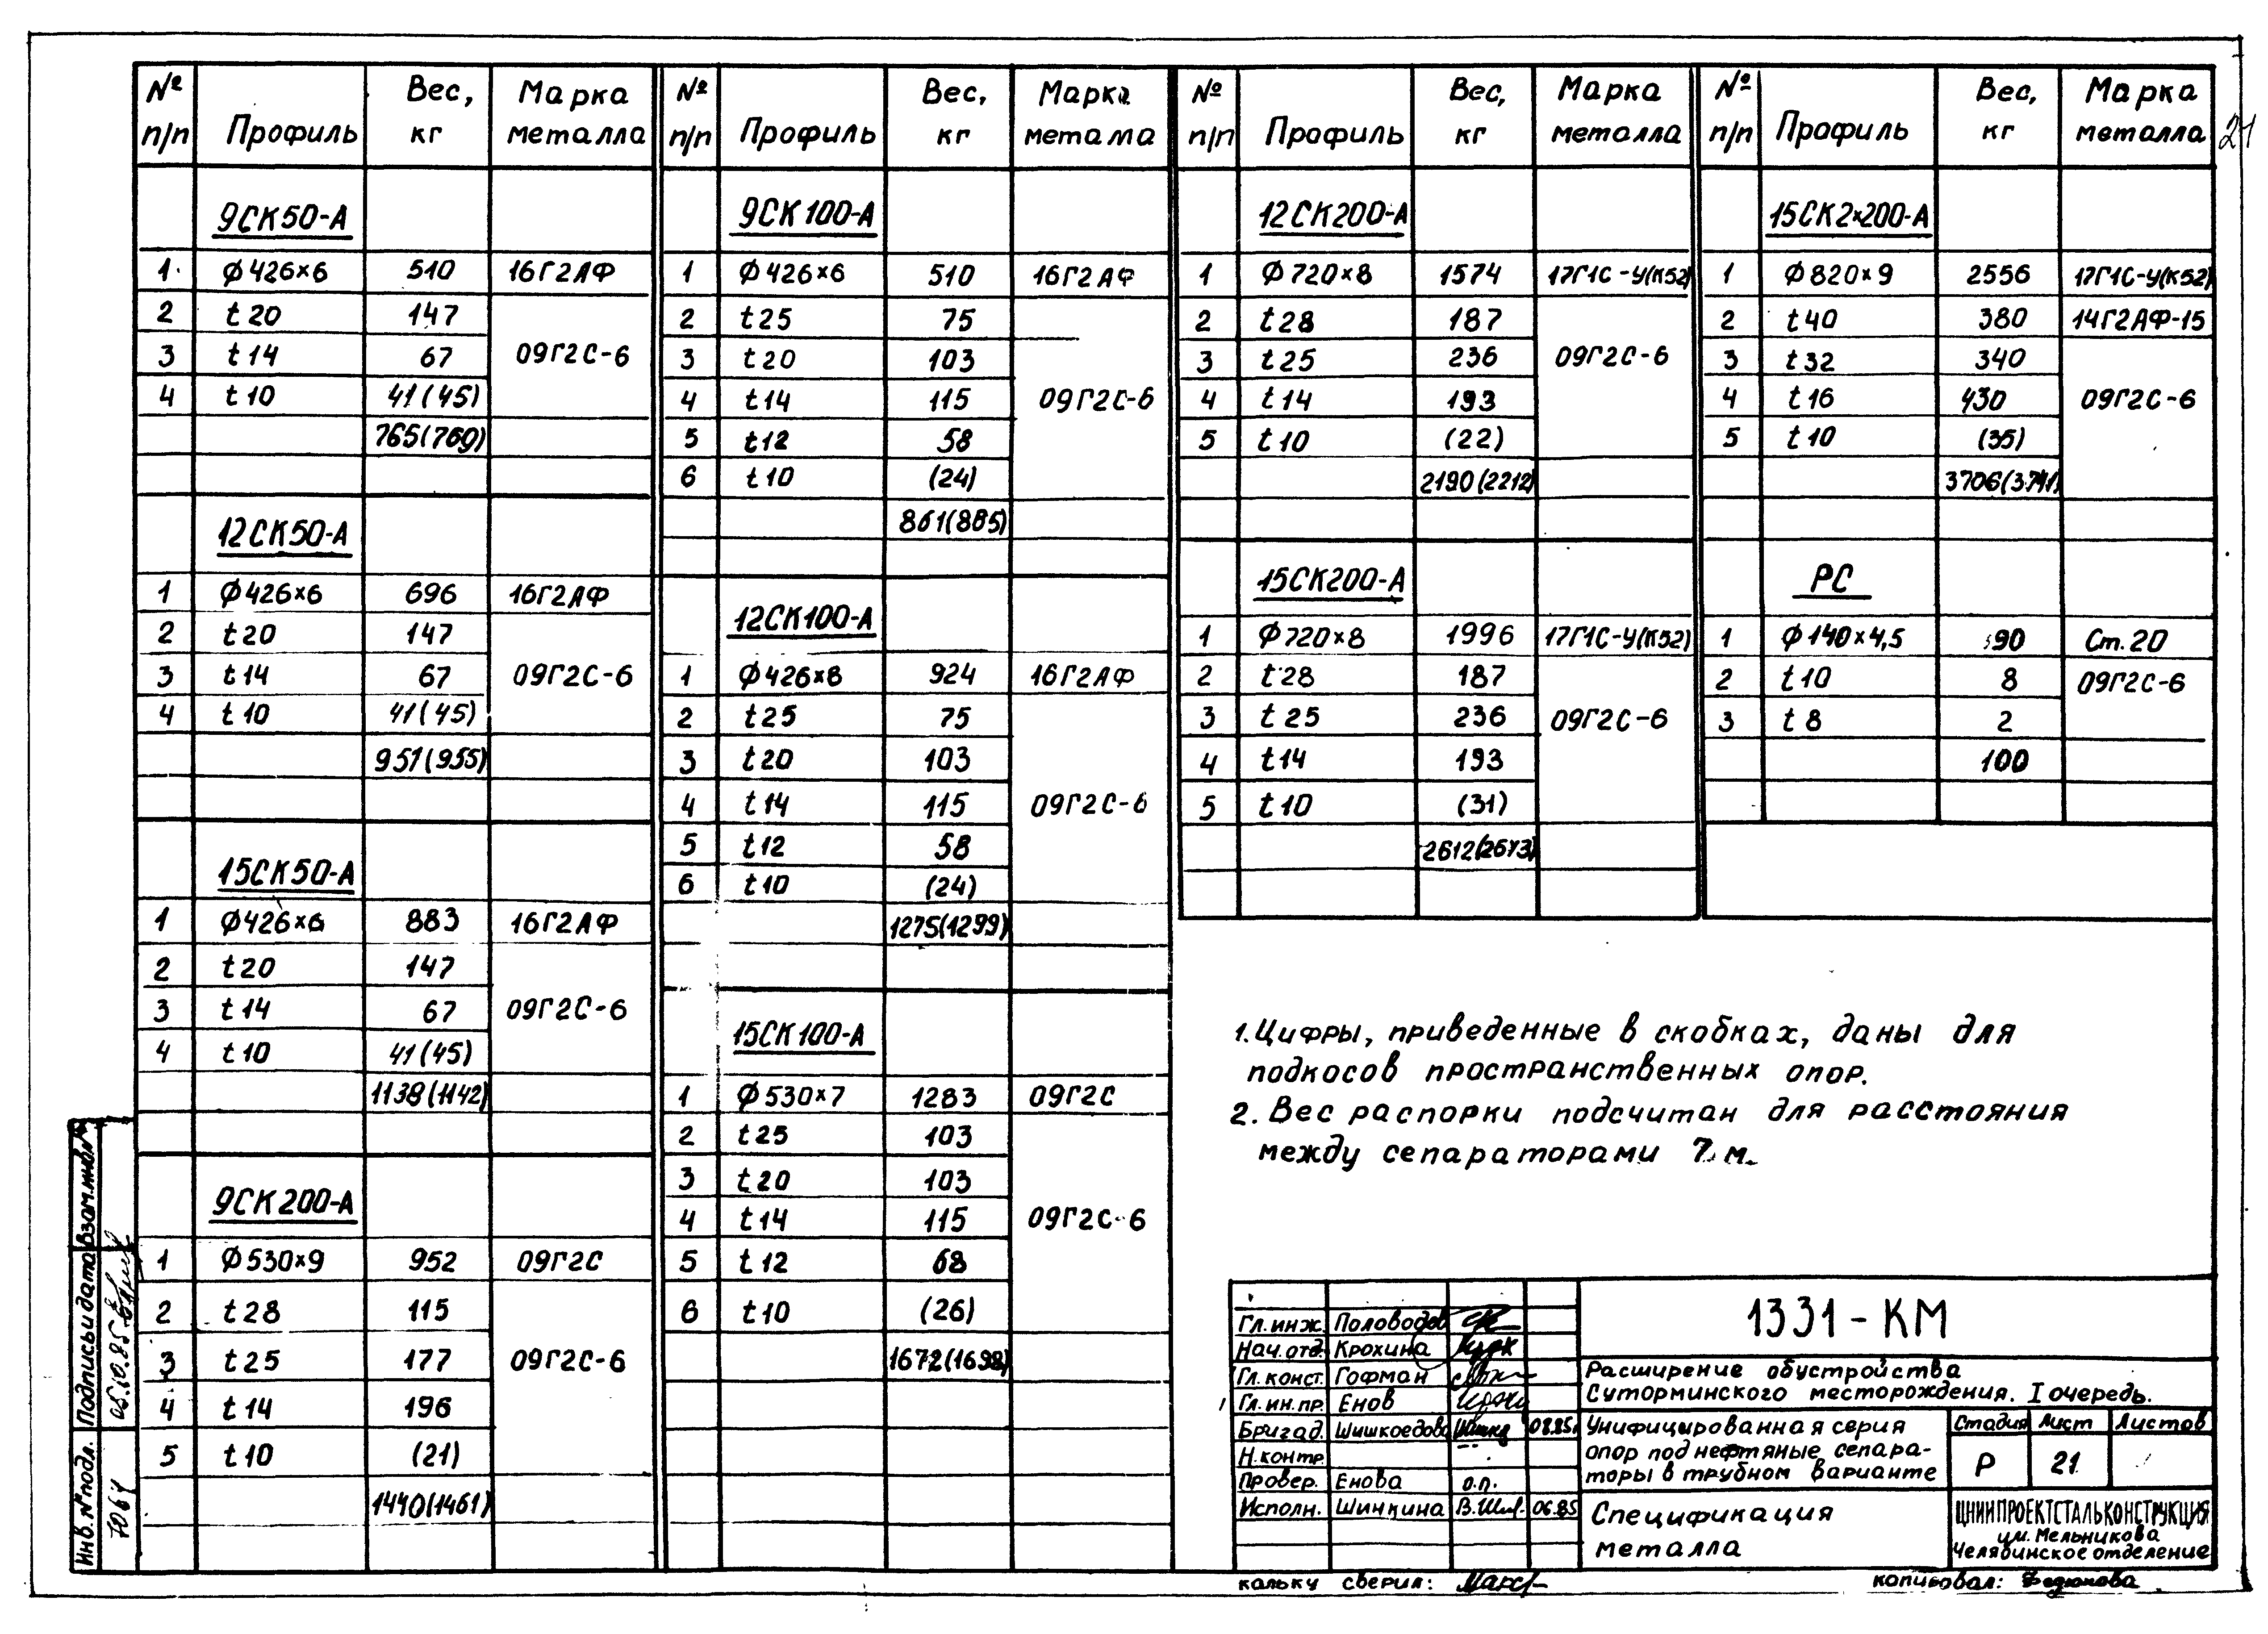 21
№ п/п Профиль Вес, кг Марка металла
9СК50-А
1 ϕ426×6 510 16Г2АФ
2 t20 147
3 t14 67 09Г2С-6
4 t10 41(45)
765(769)
12СК50-А
1 ϕ426×6 696 16Г2АФ
2 t20 147
3 t14 67 09Г2С-6
4 t10 41(45)
951(955)
15СК50-А
1 ϕ426×6 883 16Г2АФ
2 t20 147
3 t14 67 09Г2С-6
4 t10 41(45)
1138(1142)
9СК200-А
1 ϕ530×9 952 09Г2С
2 t28 115
3 t25 177 09Г2С-6
4 t14 196
5 t10 (21)
1440(1461)
№ п/п Профиль Вес, кг Марка метама
9СК100-А
1 ϕ426×6 510 16Г2АФ
2 t25 75
3 t20 103
4 t14 115 09Г2С-6
5 t12 58
6 t10 (24)
861(885)
12СК100-А
1 ϕ426×8 924 16Г2АФ
2 t25 75
3 t20 103
4 t14 115 09Г2С-6
5 t12 58
6 t10 (24)
1275(1299)
15СК100-А
1 ϕ530×7 1283 09Г2С
2 t25 103
3 t20 103
4 t14 115 09Г2С-6
5 t12 68
6 t10 (26)
1672(1698)
№ п/п Профиль Вес, кг Марка металла
12СК200-А
1 ϕ720×8 1574 17Г1С-У(К52)
2 t28 187
3 t25 236 09Г2С-6
4 t14 193
5 t10 (22)
2190(2212)
15СК200-А
1 ϕ720×8 1996 17Г1С-У(К52)
2 t28 187
3 t25 236 09Г2С-6
4 t14 193
5 t10 (31)
2612(2643)
№ п/п Профиль Вес, кг Марка металла
15СК2×200-А
1 ϕ820×9 2556 17Г1С-У(К52)
2 t40 380 14Г2АФ-15
3 t32 340
4 t16 430 09Г2С-6
5 t10 (35)
3706(3741)
РС
1 ϕ140×4,5 90 Ст.20
2 t10 8 09Г2С-6
3 t8 2
100
1. Цифры, приведенные в скобках, даны для
подкосов пространственных опор.
2. Вес распорки подсчитан для расстояния
между сепараторами 7 м.
Взам.инв.№
Подпись и дата 05.10.85
Инв.№ подл. 7067
Гл.инж. Половодов
Нач.отд. Крохина
Гл.конст. Гофман
Гл.ин.пр. Енов
Бригад. Шишкоедова 08.85
Н.контр.
Провер. Енова о.п.
Исполн. Шинкина В.Шин. 06.85
1331-КМ
Расширение обустройства
Суторминского месторождения. I очередь.
Унифицированная серия
опор под нефтяные сепара-
торы в трубном варианте
Стадия Лист Листов
Р 21
Спецификация
металла
ЦНИИПРОЕКТСТАЛЬКОНСТРУКЦИЯ
им. Мельникова
Челябинское отделение
кальку сверил:
копировал: Федюкова